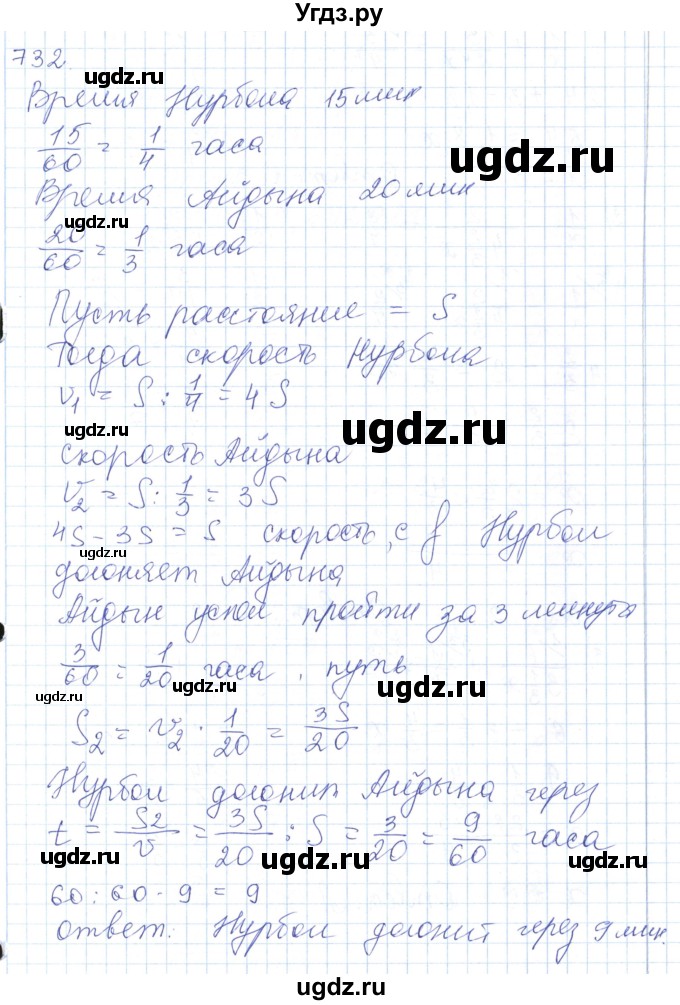 Угдз.ру
732.
Время Нурбола 15 мин
15/60 = 1/4 часа
Время Айдына 20 мин
20/60 = 1/3 часа
Пусть расстояние = S
Тогда скорость Нурбола
v₁ = S : 1/4 = 4S
скорость Айдына
v₂ = S : 1/3 = 3S
4S - 3S = S скорость, с Нурбол
догоняет Айдына
Айдын успел пройти за 3 минуты
3/60 = 1/20 часа, путь
S₂ = v₂ · 1/20 = 3S/20
Нурбол догонит Айдына через
t = S₂/v = 3S/20 : S = 3/20 = 9/60 часа
60 : 60 · 9 = 9
Ответ: Нурбол догонит через 9 мин.
ugdz.ru
ugdz.ru
ugdz.ru
ugdz.ru
ugdz.ru
ugdz.ru
ugdz.ru
ugdz.ru
ugdz.ru
ugdz.ru
ugdz.ru
ugdz.ru
ugdz.ru
ugdz.ru